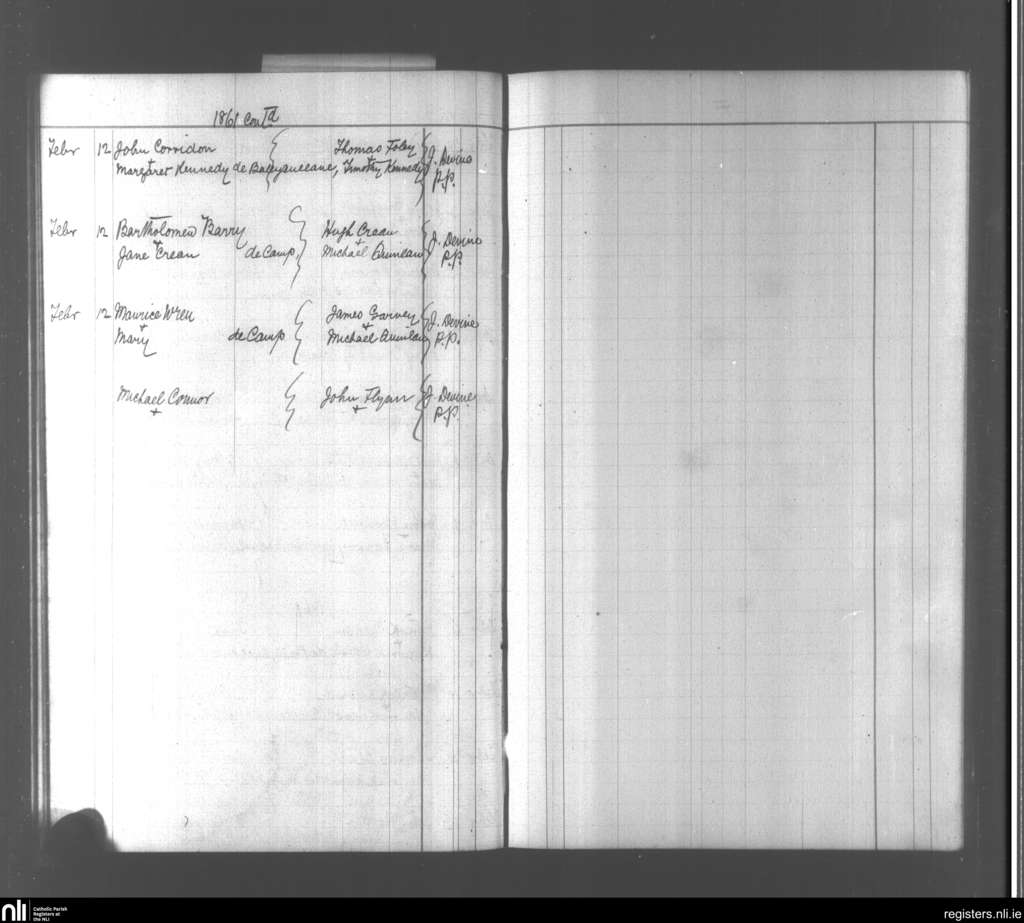 1861 Contd
Febr 12 John Corridon Thomas Foley J. Devine
+ +
Margaret Kennedy de Ballyaneeane, Timothy Kennedy P.P.
Febr 12 Bartholomew Barry Hugh Crean J. Devine
+ +
Jane Crean de Camp, Michael Quinlan P.P.
Febr 12 Maurice Wren James Garvey J. Devine
+ +
Mary de Camp Michael Quinlan P.P.
Michael Connor John Flynn J. Devine
+ + P.P.
nli Catholic Parish
Registers at
the NLI
registers.nli.ie